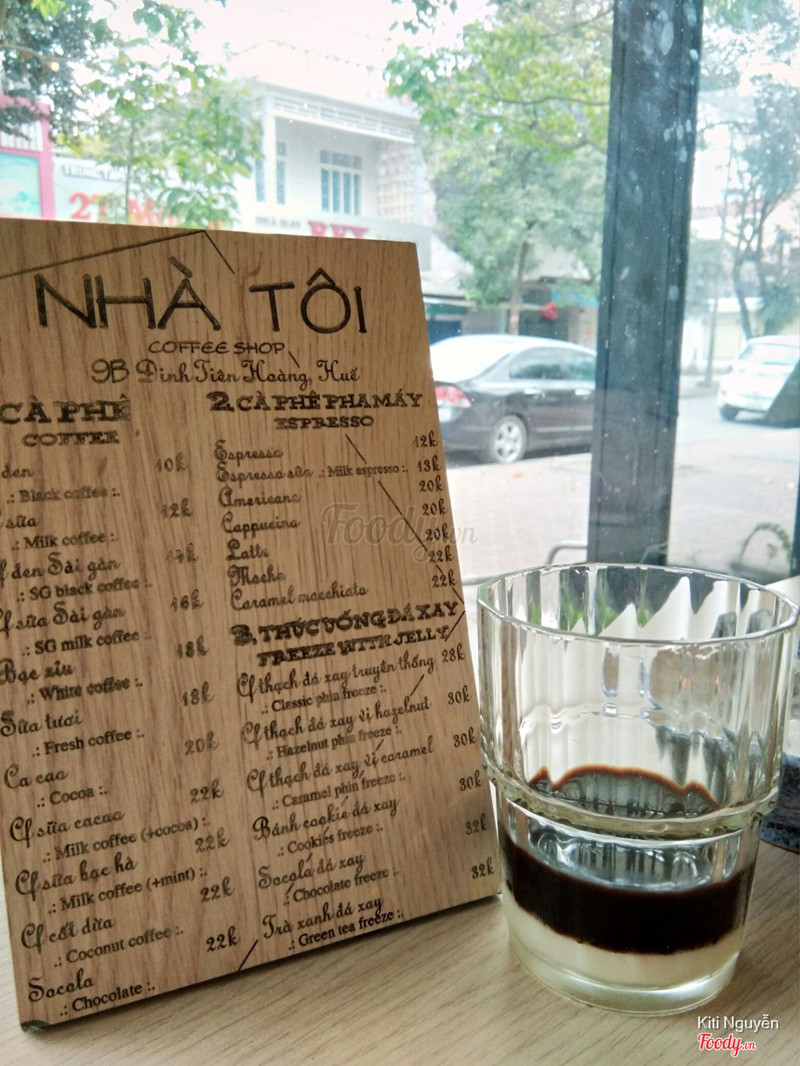 TRUNG TÂM
NHÀ MAY
NHÀ TÔI
COFFEE SHOP
9B Đinh Tiên Hoàng, Huế
CÀ PHÊ
COFFEE
đen 10k
.: Black coffee :.
sữa 12k
.: Milk coffee :.
f đen Sài gàn
.: SG black coffee :.
f sữa Sài gàn 16k
.: SG milk coffee :.
Bạc xỉu 18k
.: White coffee :.
Sữa tươi 18k
.: Fresh coffee :.
Ca cao 20k
.: Cocoa :.
Cf sữa cacao 22k
.: Milk coffee (+cocoa) :.
Cf sữa bạc hà 22k
.: Milk coffee (+mint) :.
Cf cốt dừa 22k
.: Coconut coffee :.
Socola 22k
.: Chocolate :.
2. CÀ PHÊ PHA MÁY
ESPRESSO
Espresso 12k
Espresso sữa .: Milk espresso :. 13k
Americano 20k
Cappucino 20k
Latte 20k
Mocha 22k
Caramel macchiato 22k
3. THỨC UỐNG ĐÁ XAY
FREEZE WITH JELLY
Cf thạch đá xay truyền thống 28k
.: Classic phin freeze :.
Cf thạch đá xay vị hazelnut 30k
.: Hazelnut phin freeze :.
Cf thạch đá xay vị caramel 30k
.: Caramel phin freeze :.
Bánh cookie đá xay 30k
.: Cookies freeze :.
Socola đá xay 32k
.: Chocolate freeze :.
Trà xanh đá xay 32k
.: Green tea freeze :.
Foody.vn
Kiti Nguyễn
Foody.vn